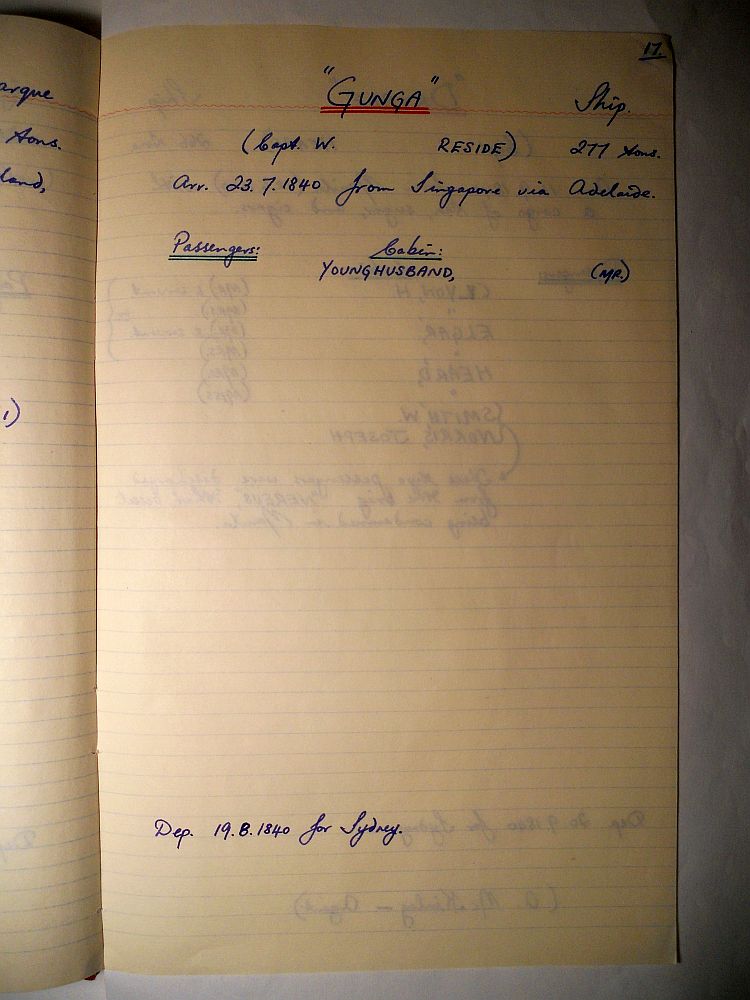 17.
"GUNGA" Ship.
(Capt. W. RESIDE) 277 tons.
Arr. 23.7.1840 from Singapore via Adelaide.
Passengers: Cabin:
YOUNGHUSBAND, (MR.)
Dep. 19.8.1840 for Sydney.
arque
tons.
land,
1)